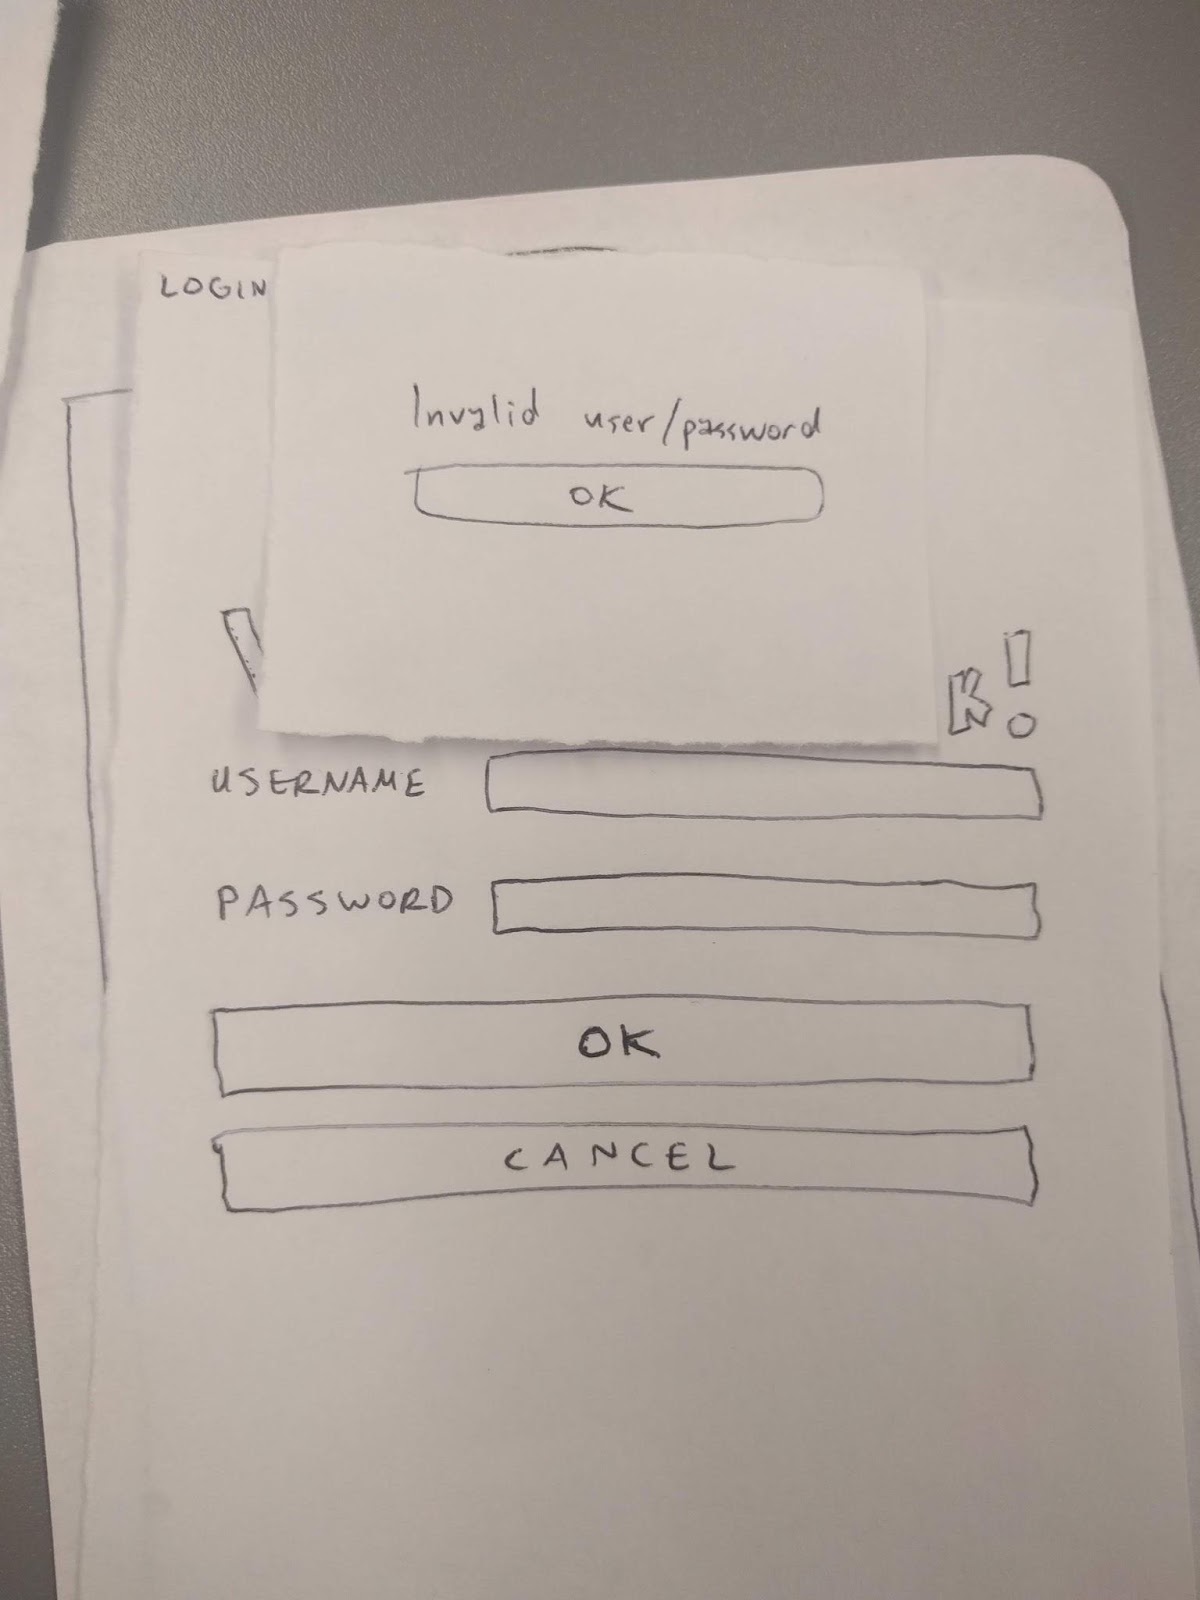 LOGIN
Invalid user/password
OK
K!
USERNAME
PASSWORD
OK
CANCEL